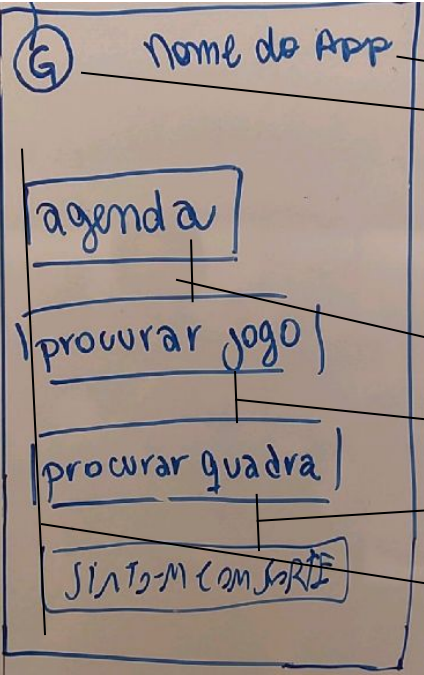 G
Nome do App
agenda
procurar jogo
procurar quadra
SINTO-M COM SORTE